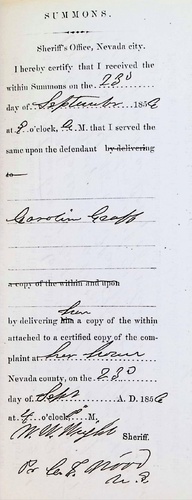 SUMMONS.
Sheriff's Office, Nevada city.
I hereby certify that I received the
within Summons on the 23d
day of September 1856
at o'clock, A. M that I served the
same upon the defendant by delivering
to
Carolin Graff
a copy of the within and upon
her
by delivering him a copy of the within
attached to a certified copy of the com-
plaint at her house
Nevada county, on the 23d
day of Sept A. D. 1856
at o'clock P. M.
W. W. Wright Sheriff.
Pr C. F. Wood
U. S.